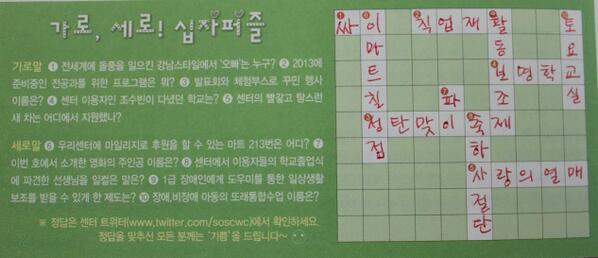 가로, 세로! 십자퍼즐
가로말 ❶ 전세계에 돌풍을 일으킨 강남스타일에서 '오빠'는 누구? ❷ 2013에
준비중인 전공과를 위한 프로그램은 뭐? ❸ 발표회와 체험부스로 꾸민 행사
이름은? ❹ 센터 이용자인 조수빈이 다녔던 학교는? ❺ 센터의 빨갛고 탐스런
새 차는 어디에서 지원했나?
세로말 ❻ 우리센터에 마일리지로 후원을 할 수 있는 마트 213번은 어디? ❼
이번 호에서 소개한 영화의 주인공 이름은? ❽ 센터에서 이용자들의 학교졸업식
에 파견한 선생님을 일컫은 말은? ❾ 1급 장애인에게 도우미를 통한 일상생활
보조를 받을 수 있게 한 제도는? ❿ 장애,비장애 아동의 또래통합수업 이름은?
※ 정답은 센터 트위터(www.twitter.com/soscwc)에서 확인하세요.
정답을 맞추신 모든 분께는 '기쁨'을 드립니다~
싸 이 직 업 재 활 토
마 동 요
트 보 명 학 교
칠 파 조 실
성 탄 맞 이 축 제
점 하
사 랑 의 열 매
절
단